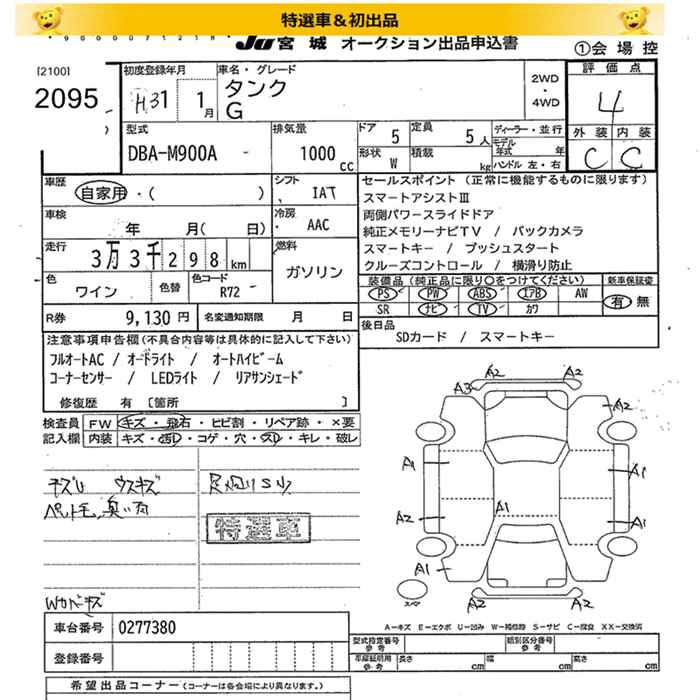 特選車＆初出品
JU 宮城 オークション出品申込書
①会場控
[2100]
2095
初度登録年月
H31 1月
車名・グレード
タンク
G
2WD
・
4WD
評価点
4
外装 内装
C C
型式
DBA-M900A
排気量
1000 cc
ドア 5
定員 5人
形状 W
積載 kg
ディーラー・並行
モデル年式 年
ハンドル 左・右
車歴
自家用・( )
シフト
IAT
車検
年 月( 日)
冷房
AAC
走行
3万3千298km
燃料
ガソリン
色
ワイン
色替
色コード
R72
R券 9,130円
名変通知期限 月 日
セールスポイント (正常に機能するものに限ります)
スマートアシストⅢ
両側パワースライドドア
純正メモリーナビTV / バックカメラ
スマートキー / プッシュスタート
クルーズコントロール / 横滑り防止
装備品 (純正品に限り○をつけてください)
PS PW ABS エアB AW
SR ナビ TV カワ
新車保証書
有 無
後日品
SDカード / スマートキー
注意事項申告欄(不具合内容等は具体的に記入して下さい)
フルオートAC / オートライト / オートハイビーム
コーナーセンサー / LEDライト / リアサンシェード
修復歴 有 [箇所 ]
検査員
記入欄
FW キズ・飛石・ヒビ割・リペア跡・×要
内装 キズ・汚レ・コゲ・穴・スレ・キレ・破レ
キズU ウスキズ
ペット毛、臭い有
足廻りS少
特選車
Wカバーキズ
A2 A2
A3 A2
A1 A1
A1
A2 A1
A1
A2 A2
スペア
A－キズ E－エクボ U－凹み W－補修跡 S－サビ C－腐食 XX－交換済
車台番号 0277380
登録番号
型式指定番号
参考
類別区分番号
参考
車庫証明用
参考
長さ cm 幅 cm 高さ cm
希望出品コーナー (コーナーは各会場により異なります。)